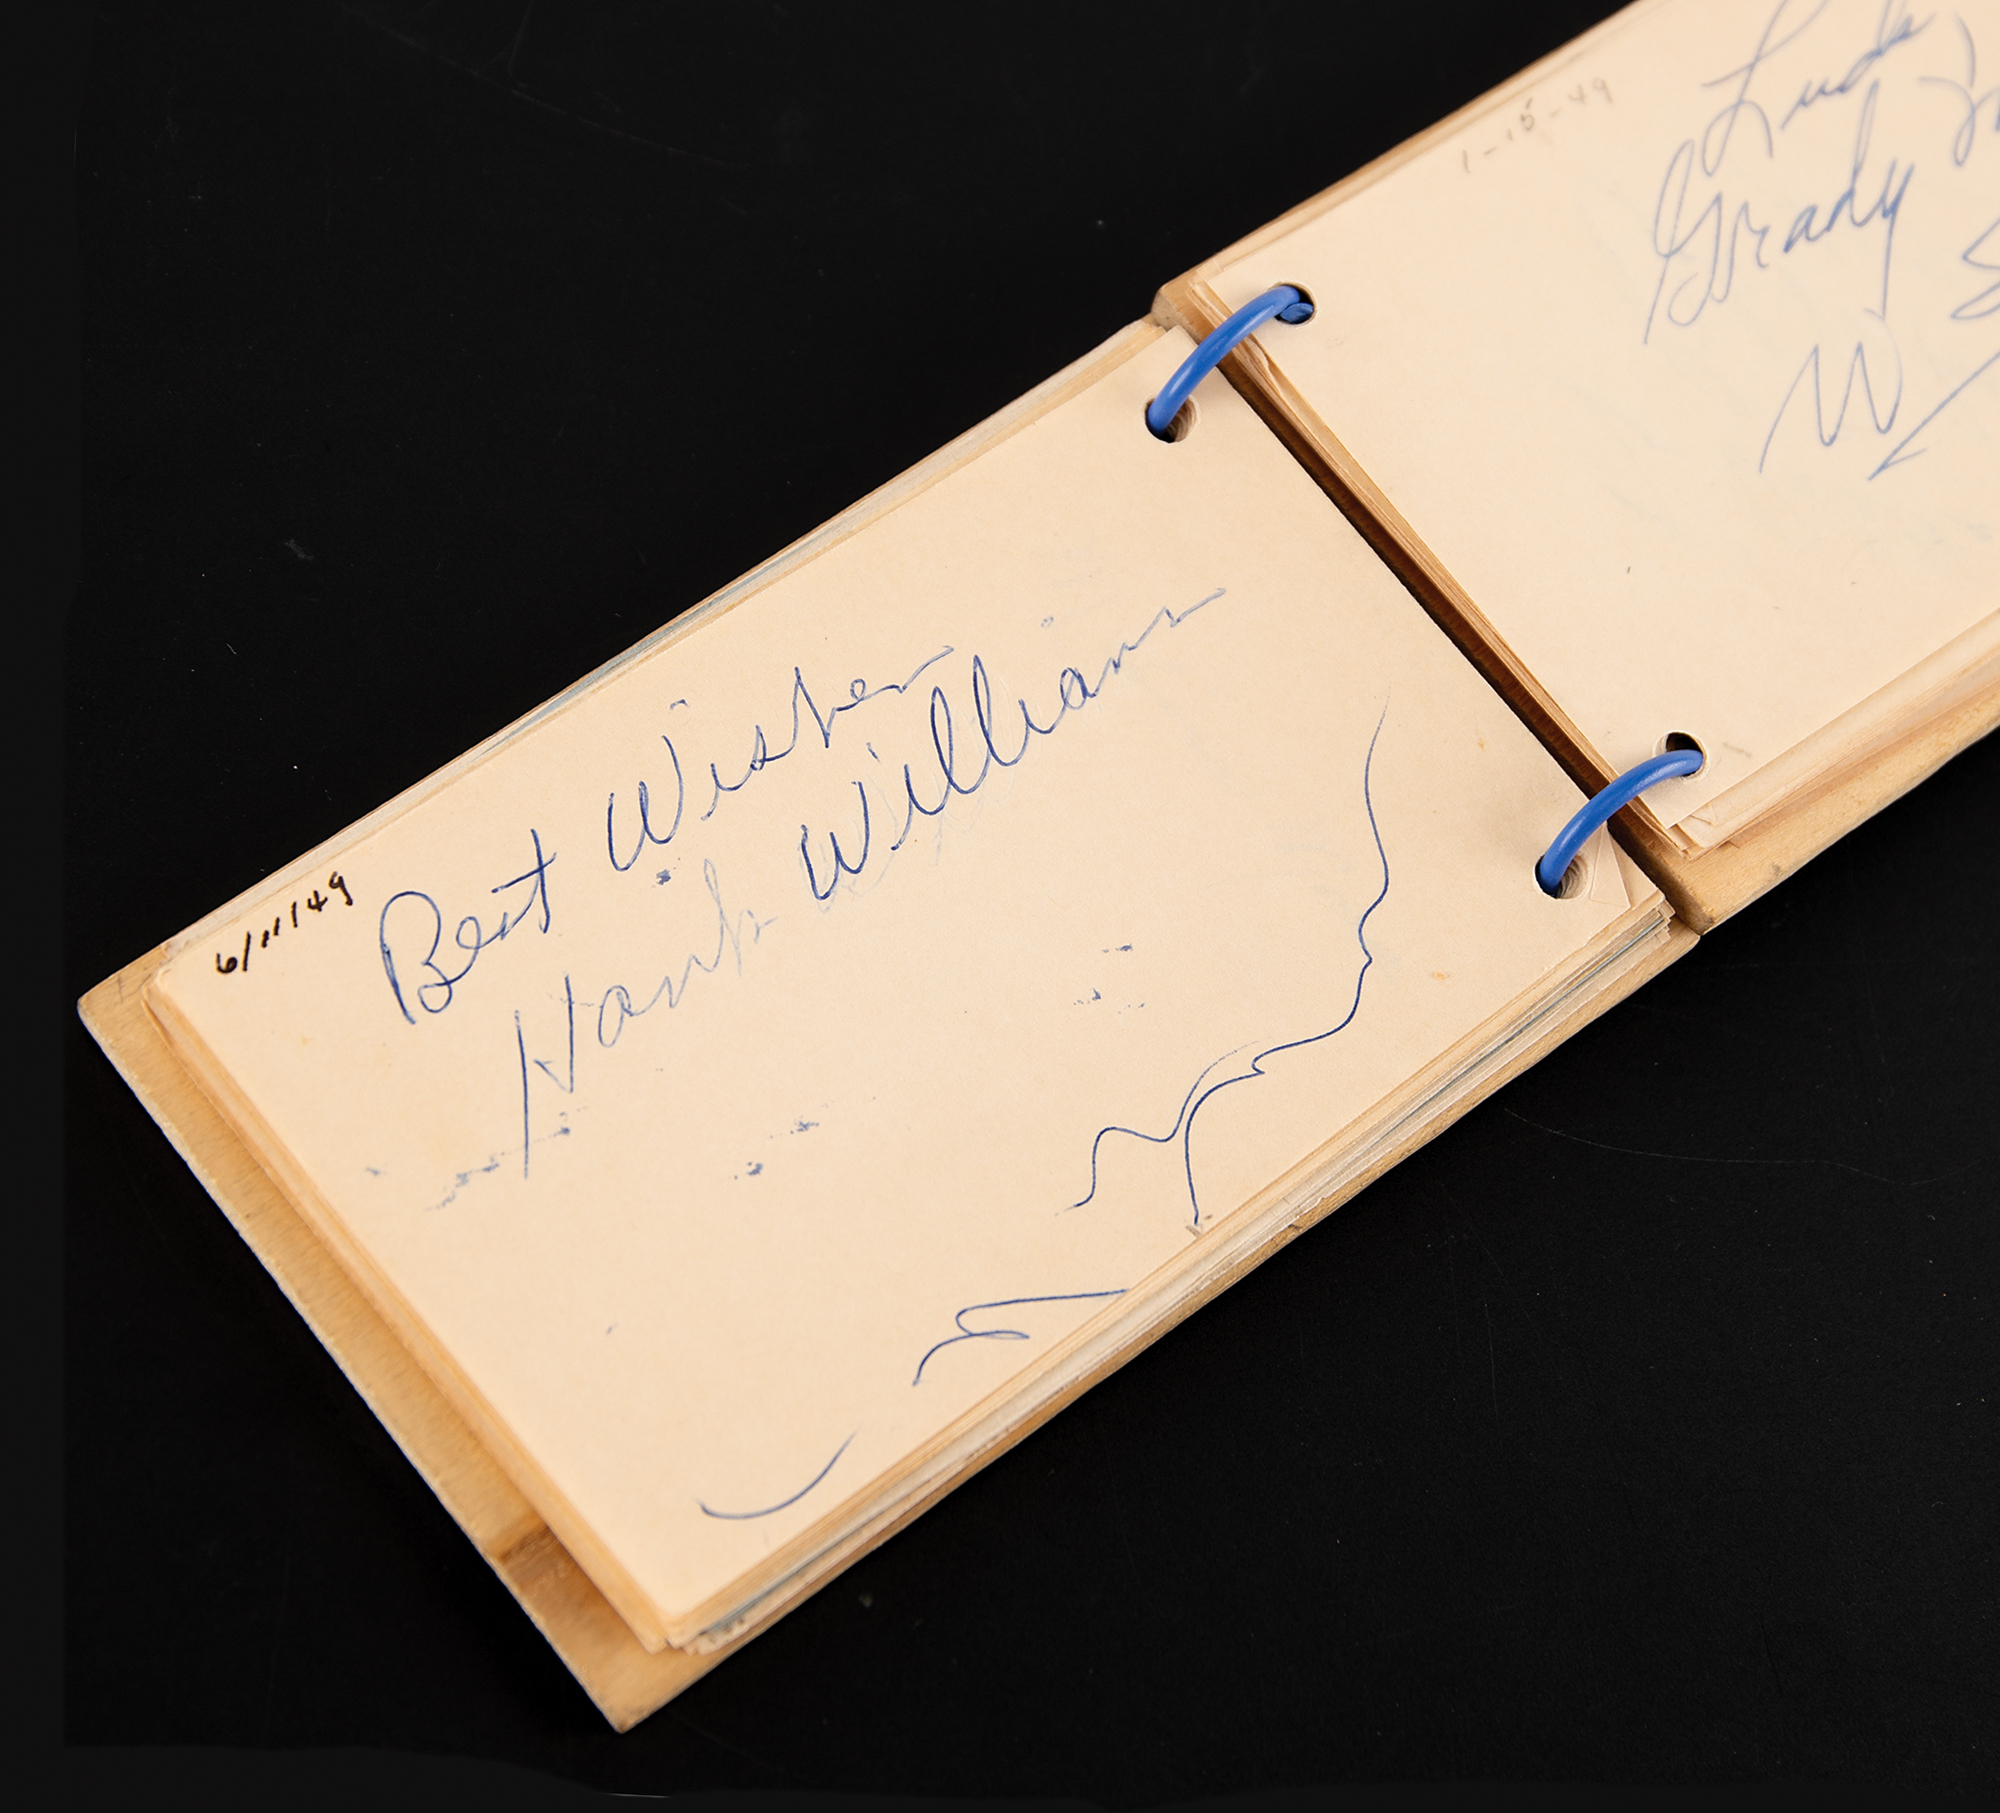 6/11/49
Best Wishes
Hank Williams
1-15-49
Luck
Grady